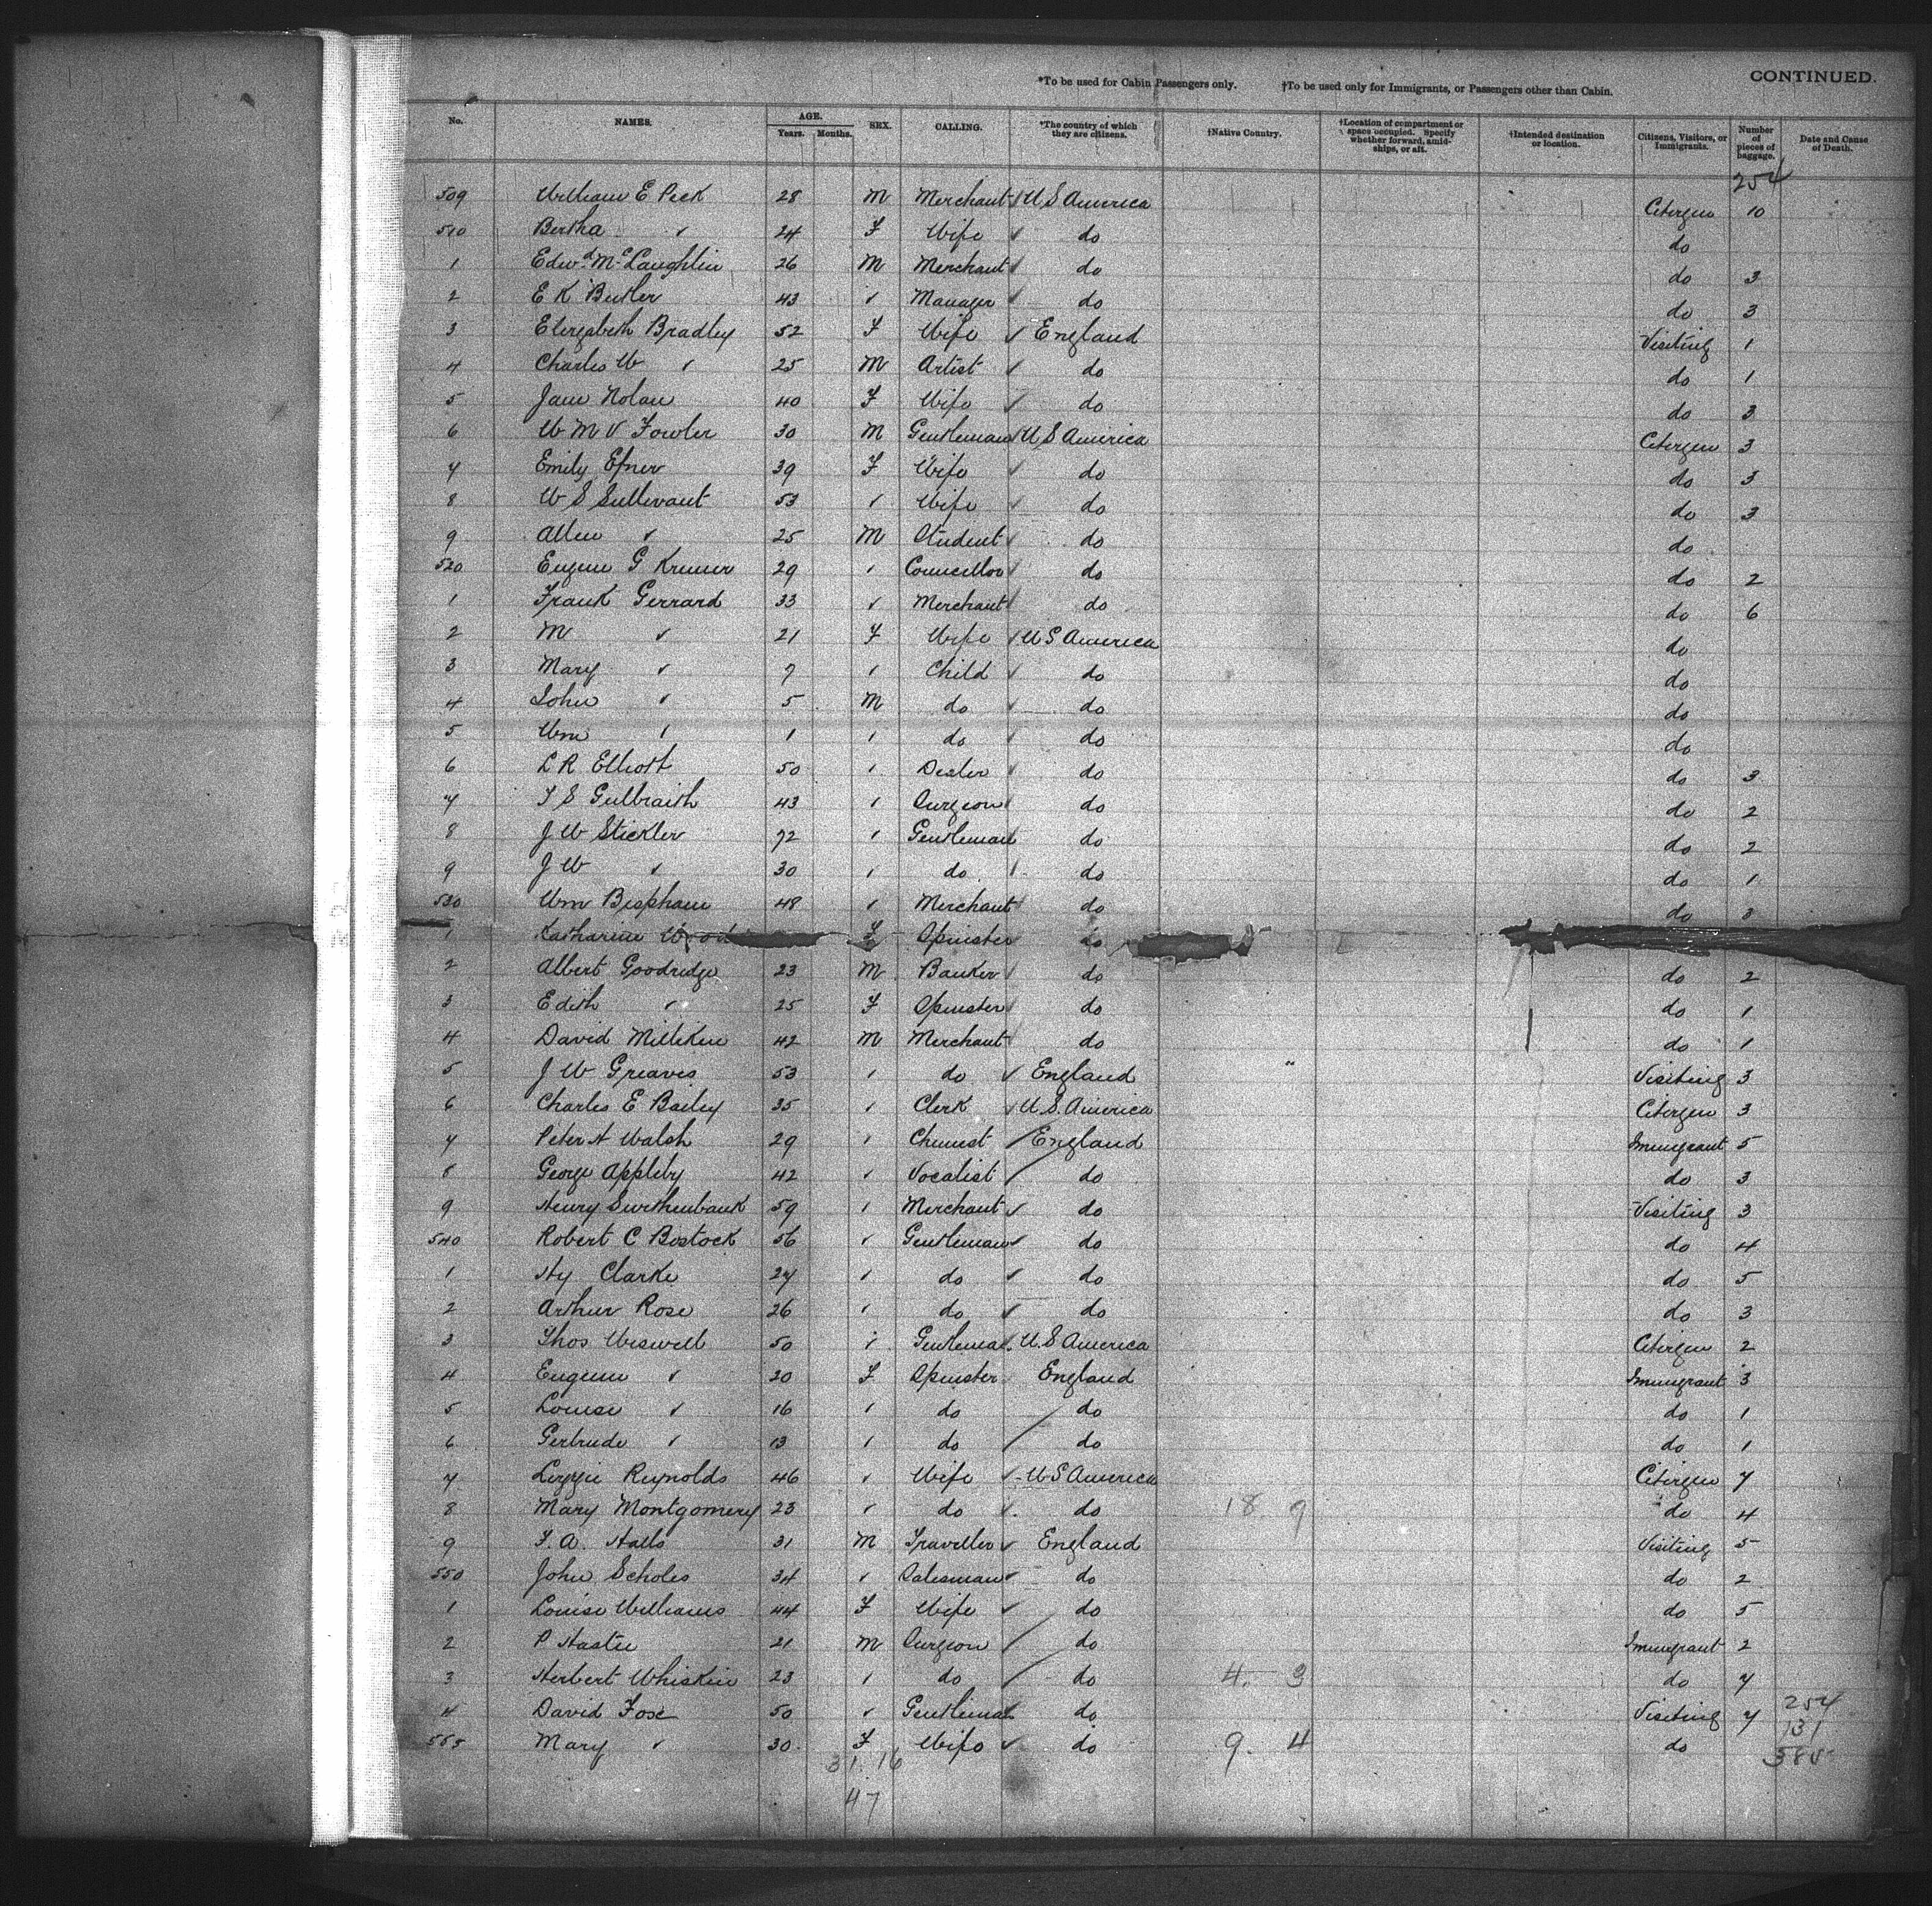 CONTINUED.
*To be used for Cabin Passengers only. †To be used only for Immigrants, or Passengers other than Cabin.
No. NAMES. AGE. Years. Months. SEX. CALLING. *The country of which they are citizens. †Native Country. †Location of compartment or space occupied. Specify whether forward, amidships, or aft. †Intended destination or location. Citizens, Visitors, or Immigrants. Number of pieces of baggage. Date and Cause of Death.
254
509 William E Peck 28 M Merchant U S America Citizen 10
510 Bertha " 24 F Wife do do
1 Edwd McLaughlin 26 M Merchant do do 3
2 E K Butler 43 " Manager do do 3
3 Elizabeth Bradley 52 F Wife England Visiting 1
4 Charles W " 25 M Artist do do 1
5 Jane Nolan 40 F Wife do do 3
6 W M V Fowler 30 M Gentleman U S America Citizen 3
7 Emily Efner 39 F Wife do do 3
8 W S Sullivant 53 " Wife do do 3
9 Allen " 25 M Student do do
520 Eugene G Kremer 29 " Councillor do do 2
1 Frank Gerrard 33 " Merchant do do 6
2 M " 21 F Wife U S America do
3 Mary " 7 " Child do do
4 John " 5 M do do do
5 Wm " 1 " do do do
6 L R Elliott 50 " Dealer do do 3
7 T S Gulbraith 43 " Surgeon do do 2
8 J W Stickler 72 " Gentleman do do 2
9 J W " 30 " do do do 1
530 Wm Bispham 48 " Merchant do do 3
1 Katharine Wood F Spinster do
2 Albert Goodridge 23 M Banker do do 2
3 Edith " 25 F Spinster do do 1
4 David Milliken 42 M Merchant do do 1
5 J W Greaves 53 " do England Visiting 3
6 Charles E Bailey 35 " Clerk U.S. America Citizen 3
7 Peter A Walsh 29 " Chemist England Immigrant 5
8 George Appleby 42 " Vocalist do do 3
9 Henry Swithenbank 59 " Merchant do Visiting 3
540 Robert C Bostock 56 " Gentleman do do 4
1 Hy Clarke 27 " do do do 5
2 Arthur Rose 26 " do do do 3
3 Thos Wiswell 50 " Gentleman U.S America Citizen 2
4 Eugenie " 20 F Spinster England Immigrant 3
5 Louise " 16 " do do do 1
6 Gertrude " 13 " do do do 1
7 Lizzie Reynolds 46 " Wife U S America Citizen 7
8 Mary Montgomery 23 " do do 18 9 do 4
9 F. A. Halls 31 M Traveller England Visiting 5
550 John Scholes 34 " Salesman do do 2
1 Louise Williams 44 F Wife do do 5
2 P Hastie 21 M Surgeon do Immigrant 2
3 Herbert Whiskin 23 " do do 4. 3 do 7
4 David Fose 50 " Gentleman do Visiting 7 254
131
555 Mary " 30 F Wife do 9. 4 do 385
31. 16
47